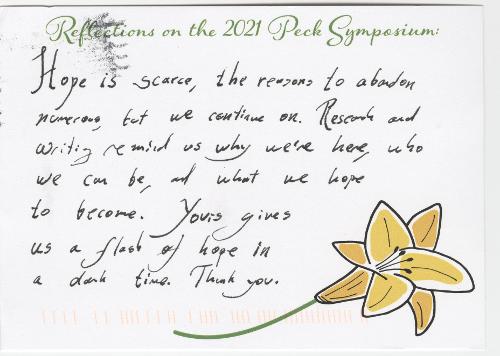 Reflections on the 2021 Peck Symposium:
Hope is scarce, the reasons to abandon
numerous, but we continue on. Research and
writing remind us why we're here, who
we can be, and what we hope
to become. Yours gives
us a flash of hope in
a dark time. Thank you.